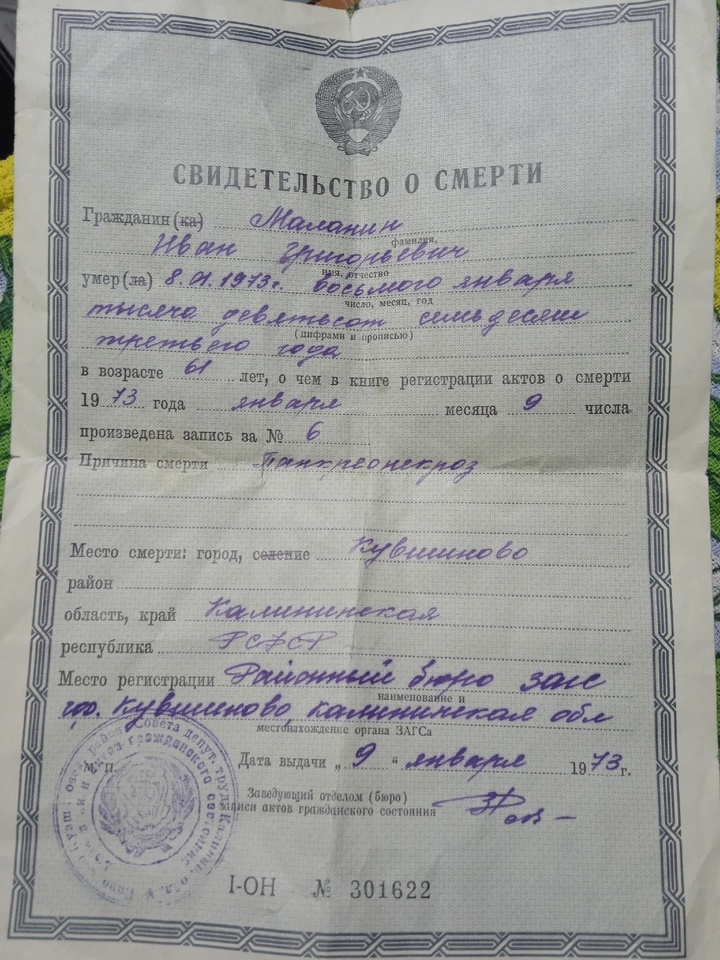 СВИДЕТЕЛЬСТВО О СМЕРТИ
Гражданин(ка) Маланин
фамилия,
Иван Григорьевич
имя, отчество
умер(ла) 8.01.1973г. восьмого января
число, месяц, год
тысяча девятьсот семьдесят
(цифрами и прописью)
третьего года
в возрасте 61 лет, о чем в книге регистрации актов о смерти
1973 года января месяца 9 числа
произведена запись за № 6
Причина смерти Панкреонекроз
Место смерти: город, селение Кувшиново
район
область, край Калининская
республика РСФСР
Место регистрации Районный бюро загс
наименование и
гор. Кувшиново, калининская обл
местонахождение органа ЗАГСа
М. П. Дата выдачи „ 9 “ января 1973 г.
Заведующий отделом (бюро)
записи актов гражданского состояния
I-ОН № 301622
Совета депут. труд. Калинин. обл.
гражданского состояния